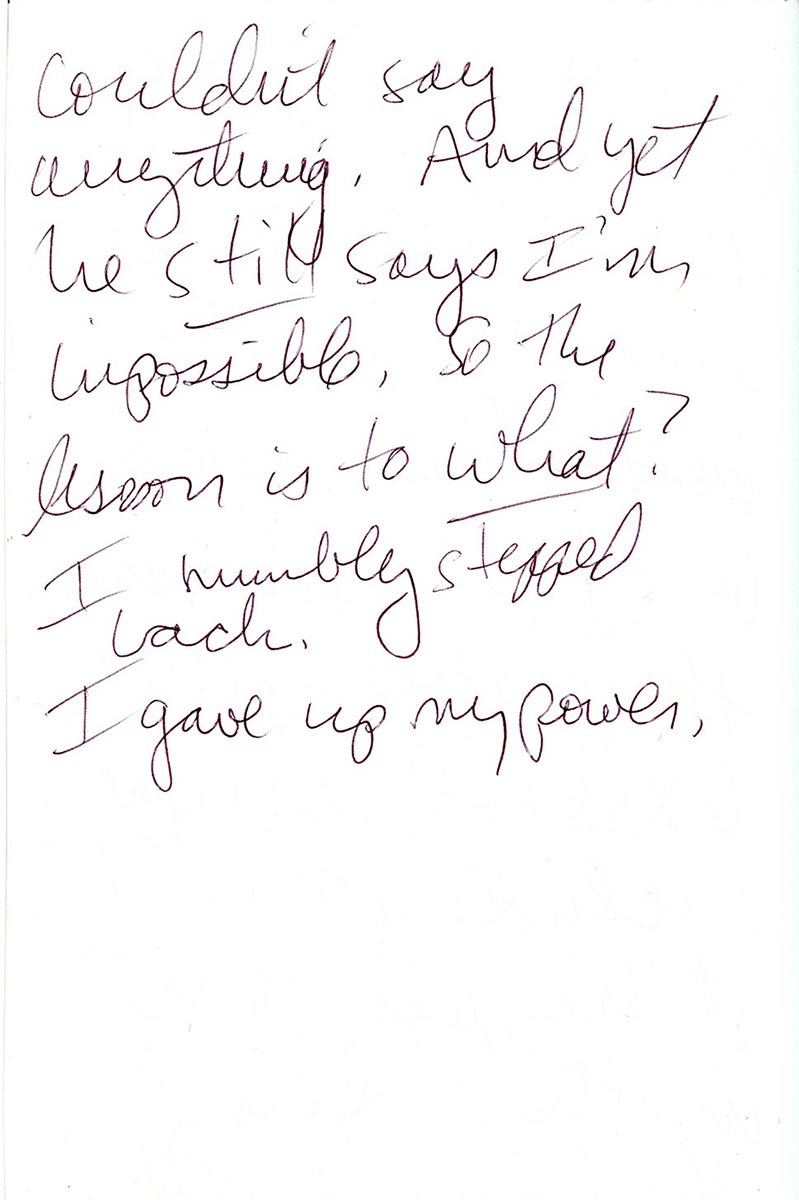 couldn't say
anything. And yet
he still says I'm
impossible, so the
lesson is to what?
I humbly stepped
back.
I gave up my power,